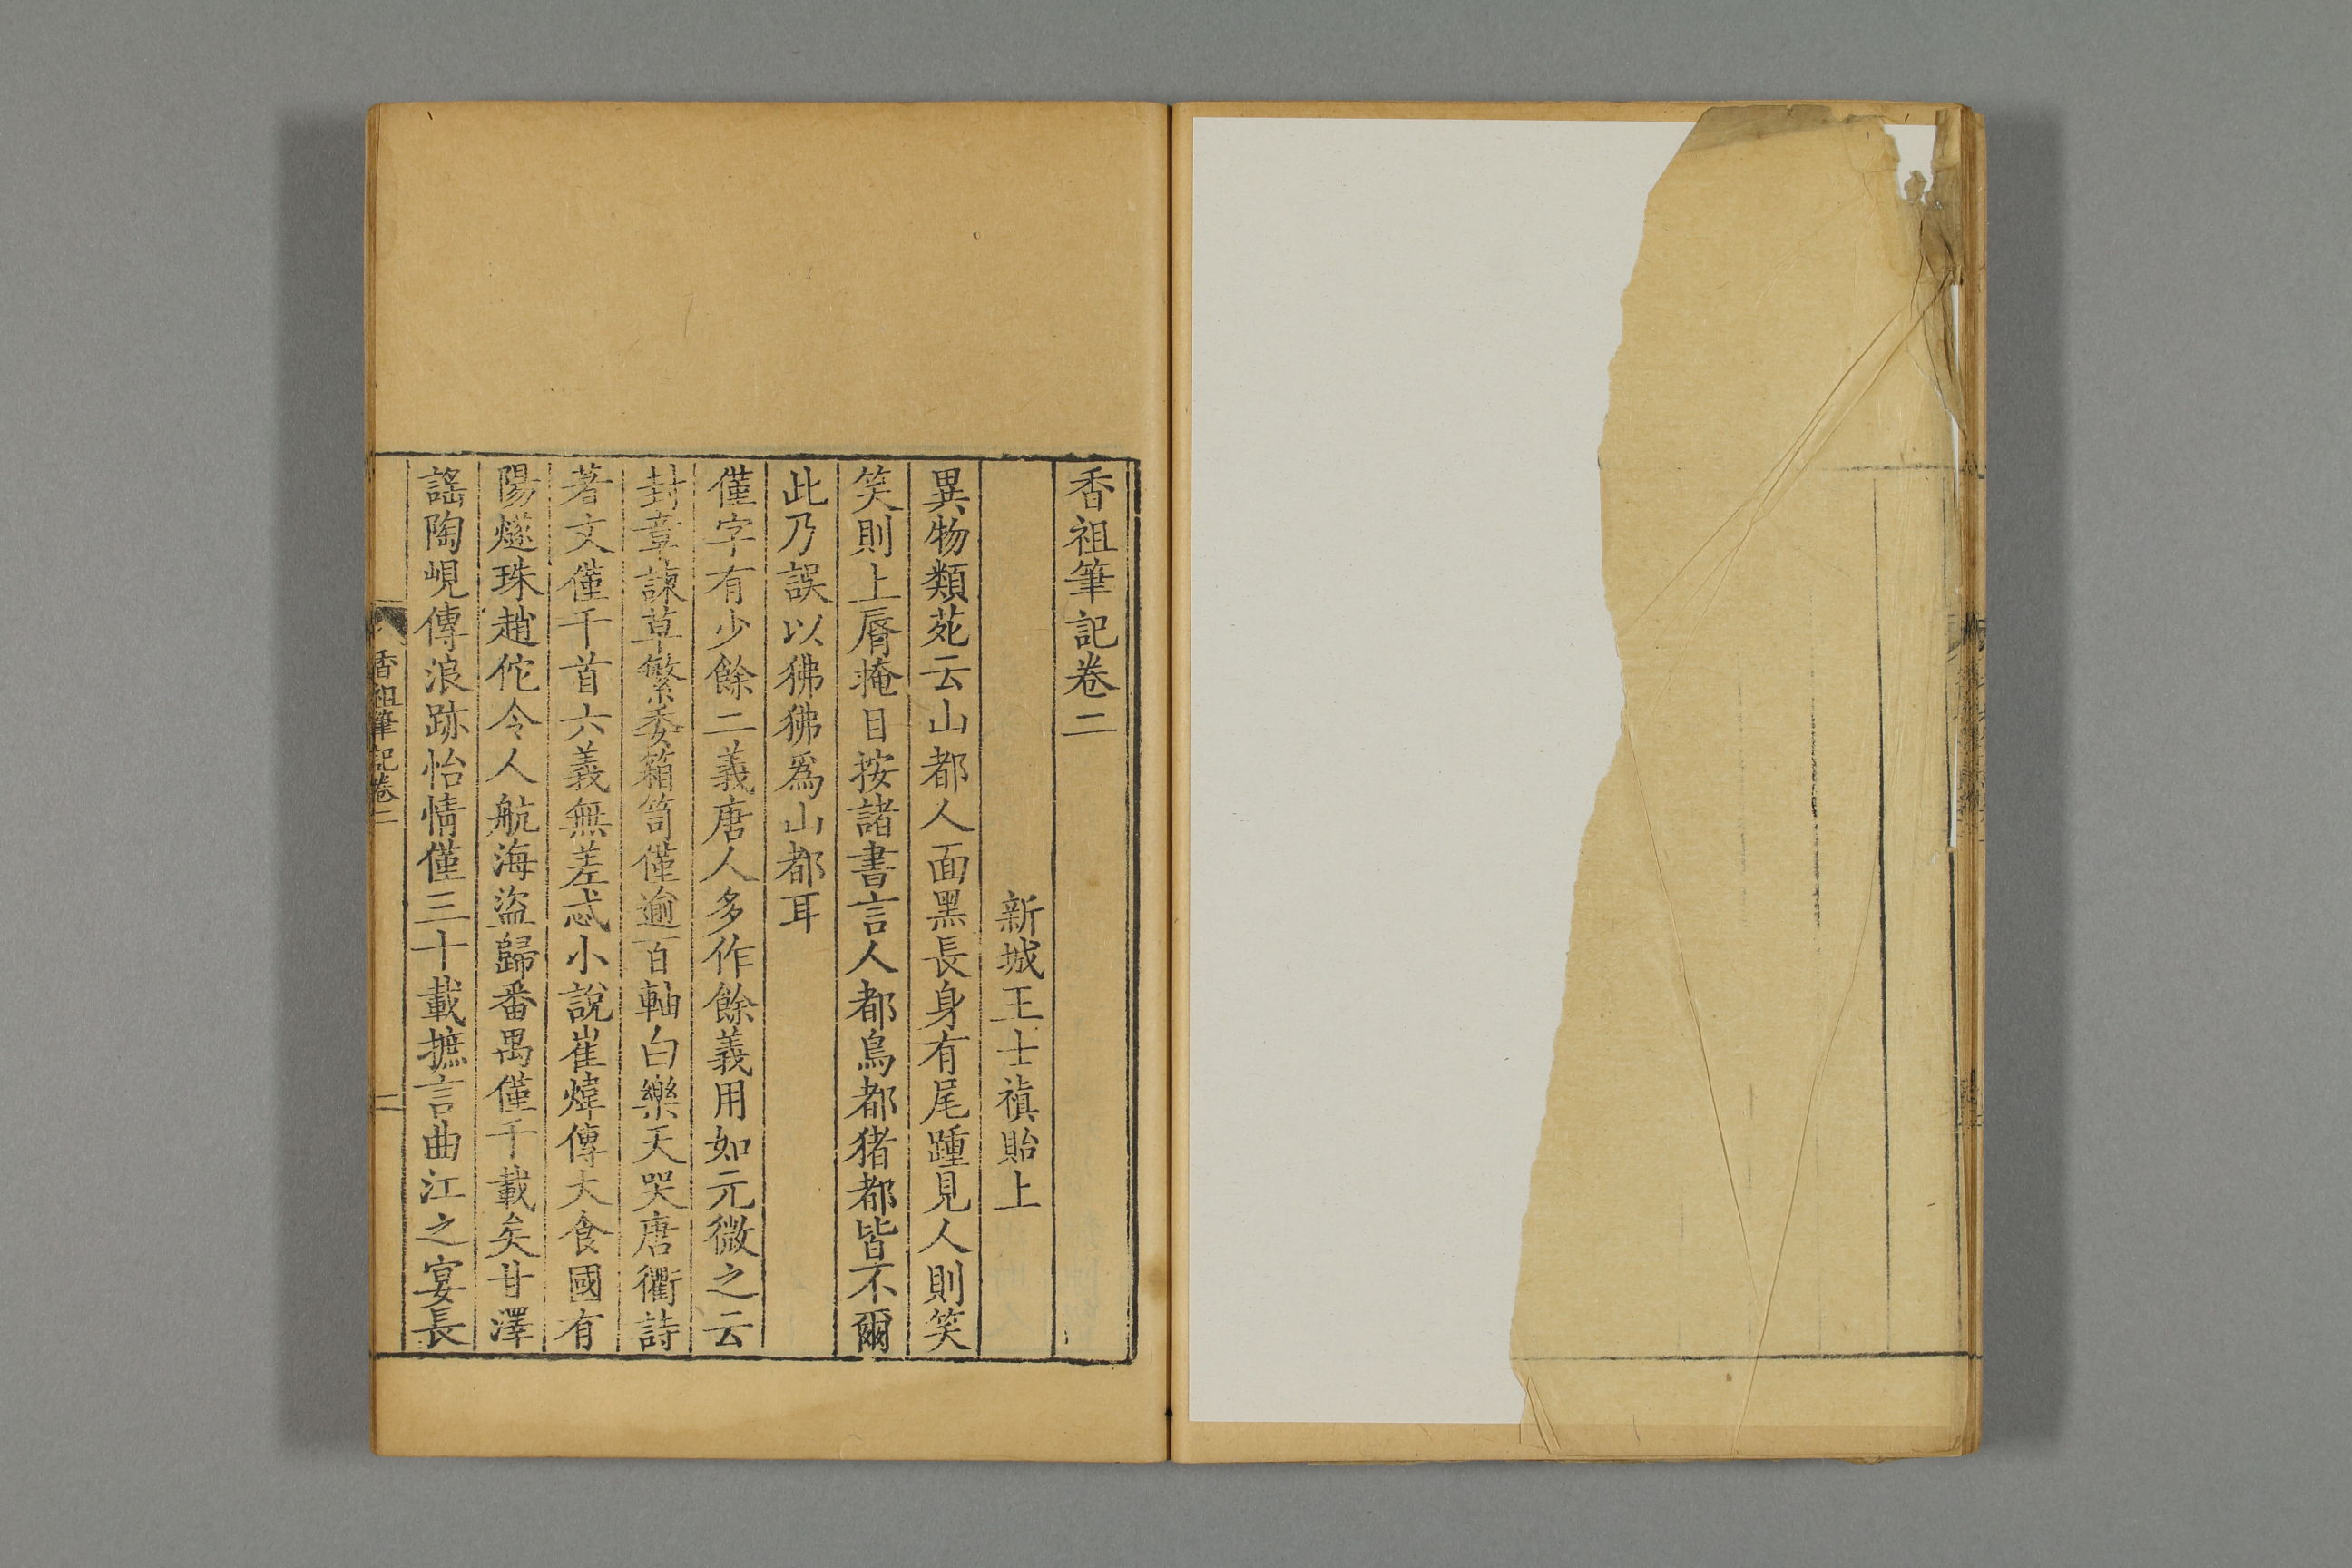 香祖筆記卷二
新城王士禛貽上
異物類苑云山都人面黑長身有尾踵見人則笑
笑則上脣掩目按諸書言人都鳥都猪都皆不爾
此乃誤以狒狒爲山都耳
僅字有少餘二義唐人多作餘義用如元微之云
封章諫草繁委箱笥僅逾百軸白樂天哭唐衢詩
著文僅千首六義無差忒小說崔煒傳大食國有
陽燧珠趙佗令人航海盜歸番禺僅千載矣甘澤
謠陶峴傳浪跡怡情僅三十載摭言曲江之宴長
香祖筆記卷二